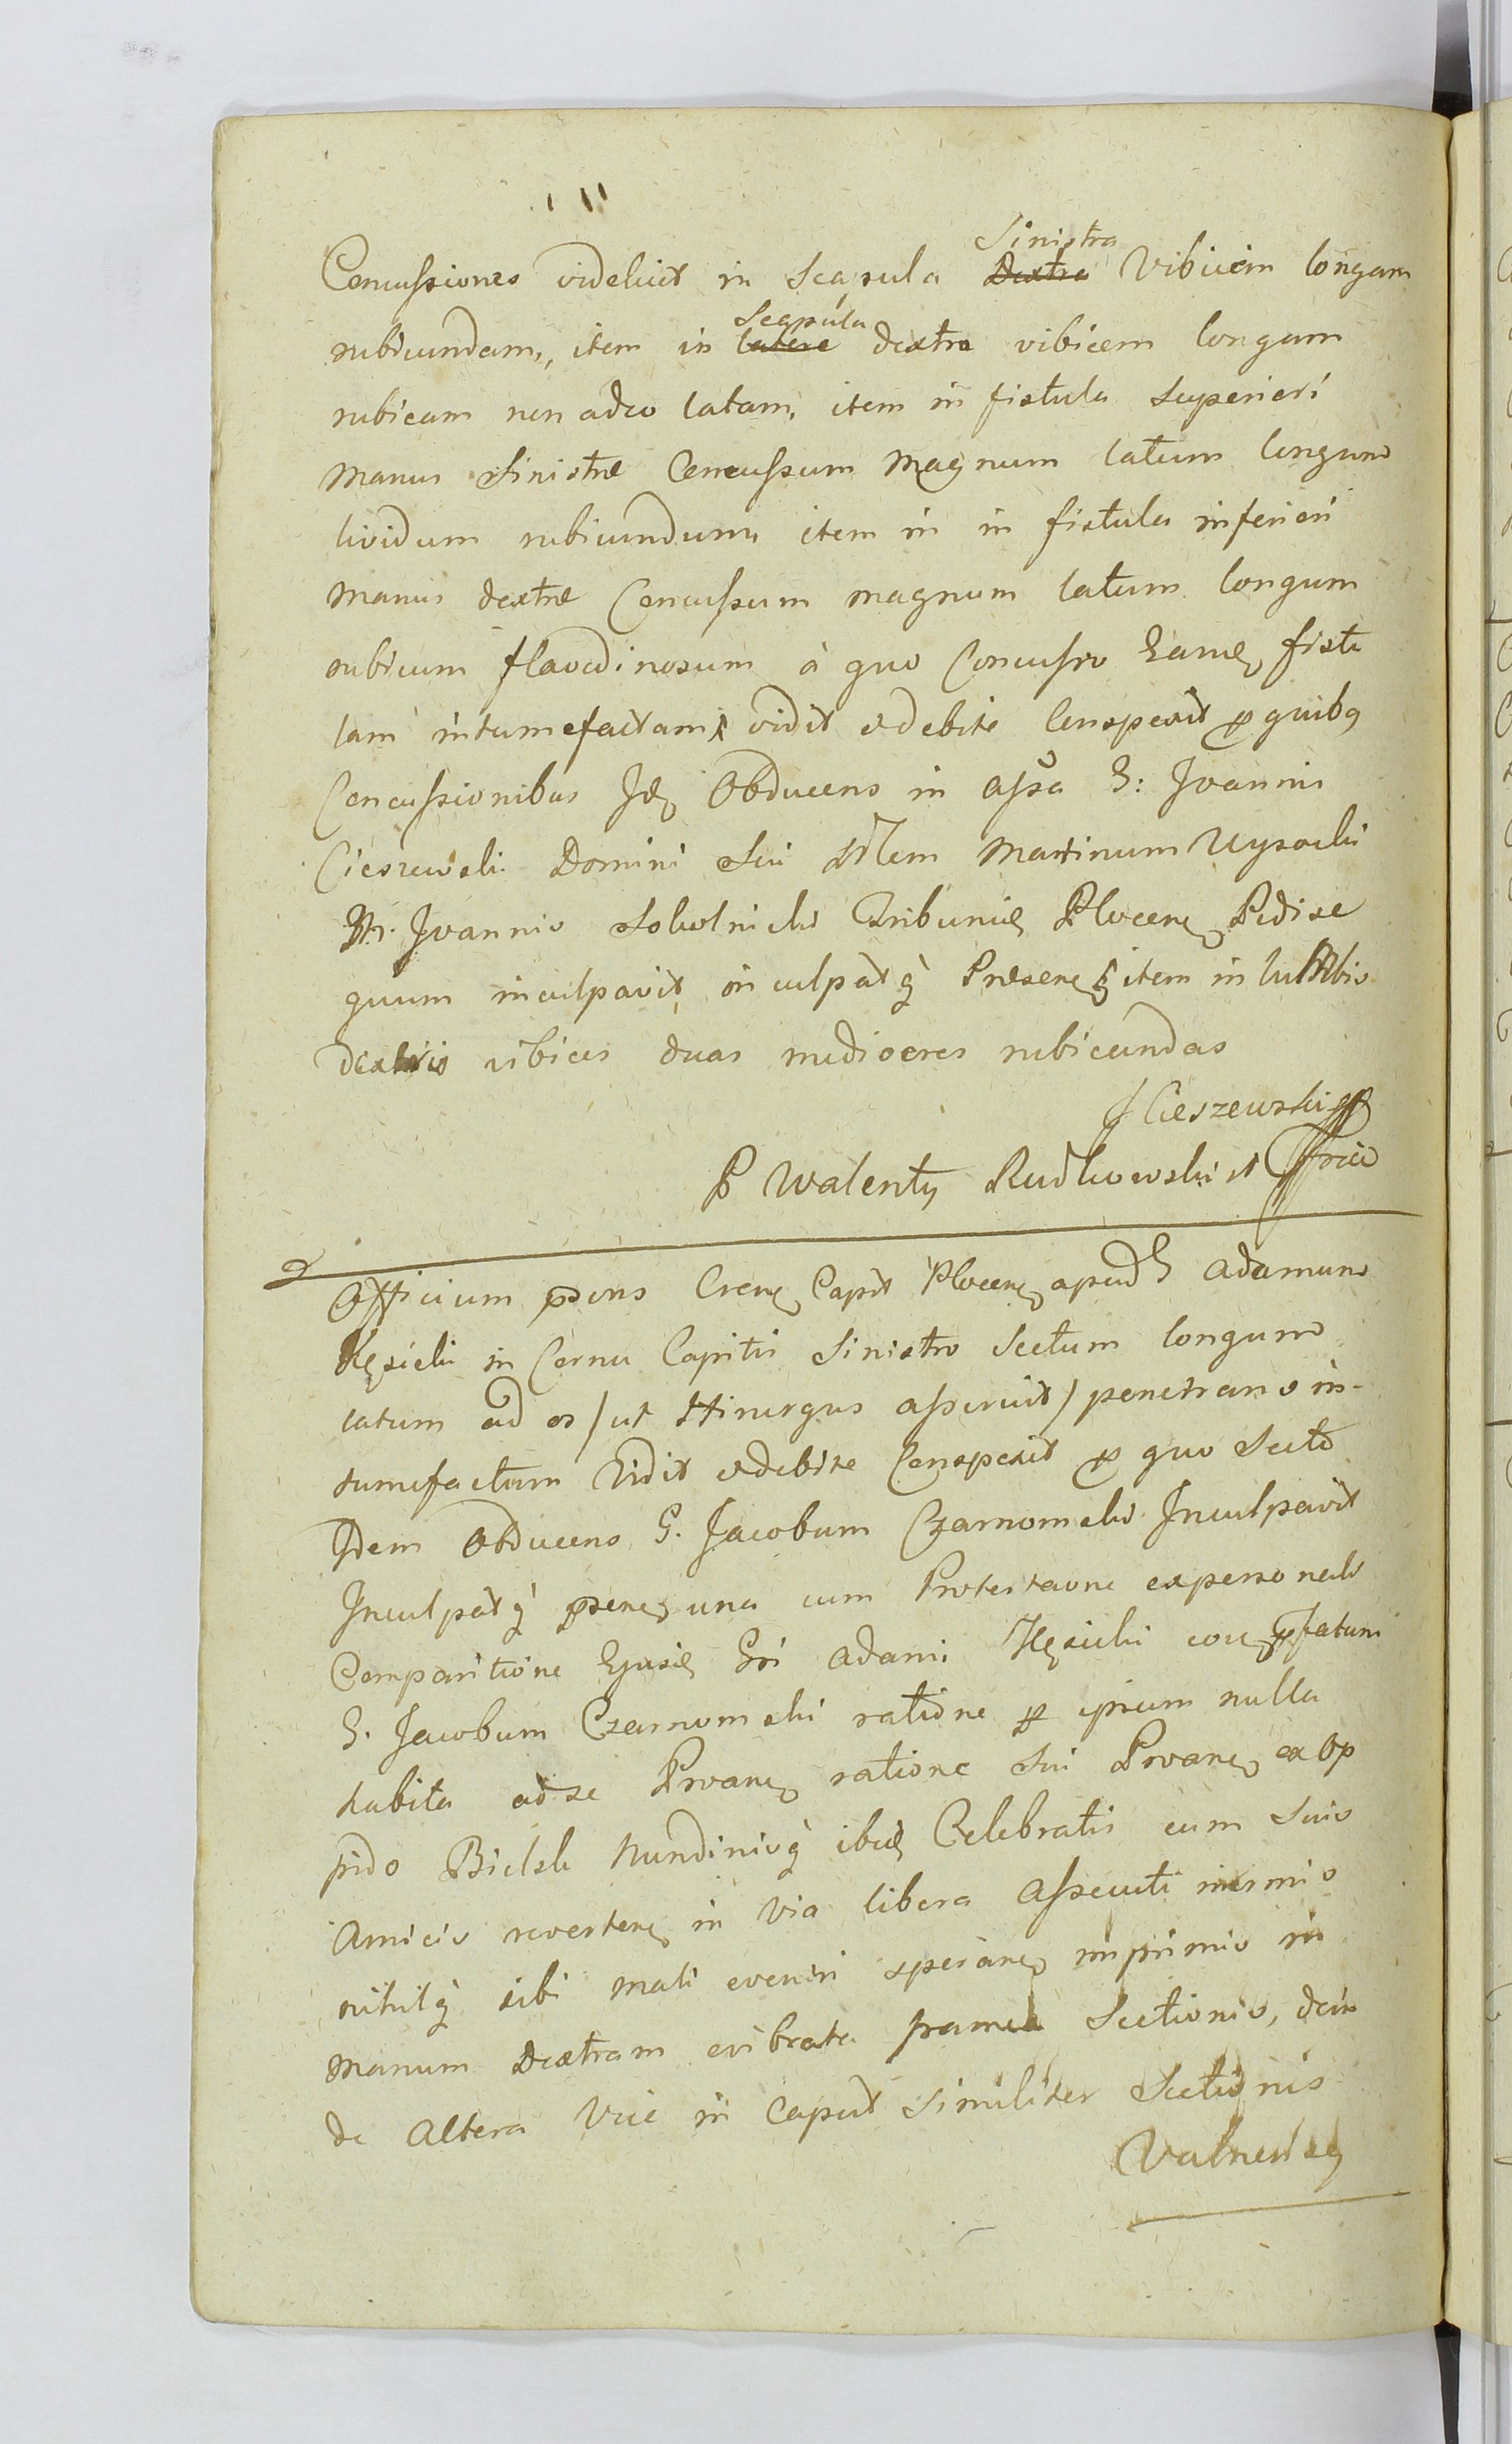 Concussiones videlicet in Scapula Sinistra Dextra Vibicem longam
rubicundam, item in Scapula latere dextra vibicem longam
rubicam non adeo latam, item in fistula Superiori
Manus Sinistræ Concussum Magnum latum longum
lividum rubicundum item in in fistula inferiori
Manus dextræ Concussum magnum latum longum
rubicum flavedinosum à quo Concusso Eand fistu
lam intumefactam vidit et debite Conspexit p quibq
Concussionibus Id Obducens in assa G: Joannis
Cieszewski Domini Sui Martinum Wysocki
M. Joannis Sokolnicki Tribunid Plocen Pedise
quum inculpavit, inculpatq Præsen item in lumbis
dextris vibices duas mediocres rubicundas
J Cieszewski
P Walenty Rudkowski
Officium præsens Cren Capit Plocen apud G Adamum
Kęsicki in Cornu Capitis Sinistro Sectum longum
latum ad os /ut Hirurgus asseruit/ penetrans in-
tumefactum Vidit et debite Conspexit p quo Secto
Idem Obducens G. Jacobum Czarnomski Inculpavit
Inculpatq præsen una cum Protestaone ex personali
Comparitione Ejusd Gsi Adami Kęsicki con præfatum
G. Jacobum Czarnomski ratione p ipsum nulla
habita ad se Provan ratione Sui Provan ex Op
pido Bielsk Nundinisq ibid Celebratis cum Suis
Amicis reverten in Via libera Assecuti inermis
nihilq sibi mali eveniri speran imprimis in
Manum Dextram evibrata framea Sectionis, dein
de Altera Vice in Caput Similiter Sectionis
Vulneris